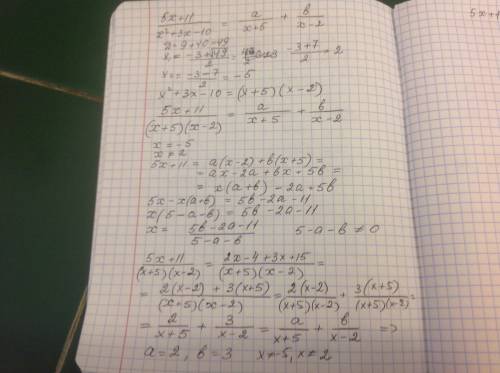 5x+11/(x²+3x-10) = a/(x+5) + b/(x-2)
D=9+40=49
x₁=(-3+√49)/2 = (-3+7)/2 = 2
x₂=(-3-7)/2 = -5
x²+3x-10=(x+5)(x-2)
5x+11/((x+5)(x-2)) = a/(x+5) + b/(x-2)
x=-5
x≠2
5x+11 = a(x-2)+b(x+5)=
= ax-2a+bx+5b=
= x(a+b)-2a+5b
5x-x(a+b)=5b-2a-11
x(5-a-b)=5b-2a-11
x= (5b-2a-11)/(5-a-b) 5-a-b≠0
(5x+11)/((x+5)(x-2)) = (2x-4+3x+15)/((x+5)(x-2)) =
= (2(x-2)+3(x+5))/((x+5)(x-2)) = 2(x-2)/((x+5)(x-2)) + 3(x+5)/((x+5)(x-2)) =
= 2/(x+5) + 3/(x-2) = a/(x+5) + b/(x-2) =>
a=2, b=3 x≠-5, x≠2
5x+1